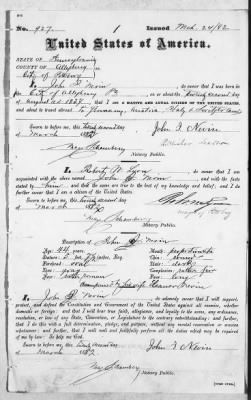 No. 927. Issued Mch. 24/82
United States of America.
STATE OF Pennsylvania
COUNTY OF Allegheny
City of
I, John I. Nevin do swear that I was born
in City of Allegheny Pa on the
day
of August 1837 that I am a NATIVE AND LOYAL CITIZEN OF THE UNITED STATES, and
about to travel to Germany, Austria, Italy & Switzerland
Sworn to before me, this twenty second day
of March 1882
John I. Nevin
Notary Public.
I, Robert W. Lyon do swear that I am acquainted with the
above named John I. Nevin and with the facts
stated by him and that the same are true to the best of my knowledge and belief; and I
do further swear that I am a citizen of the United States.
Sworn to before me, this twenty second day
of March 1882
Notary Public.
Description of John I. Nevin
Age: 44 years
Mouth: proportionate
Stature:
Chin: round
Forehead: oval
Hair: dark
Eyes: gray
Complexion: rather fair
Nose: rather roman
Face: long
Accompanied by
I, John I. Nevin do solemnly swear that I will support,
protect, and defend the Constitution and Government of the United States against all enemies, whether
domestic or foreign; and that I will bear true faith, allegiance, and loyalty to the same, any ordinance,
resolution, or law of any State, Convention, or Legislature to the contrary notwithstanding; and further,
that I do this with a full determination, pledge, and purpose, without any mental reservation or evasion
whatsoever; and further, that I will well and faithfully perform all the duties which may be required
of me by law. So help me God.
Sworn to before me, this twenty second day
of March 1882
John I. Nevin
Notary Public.